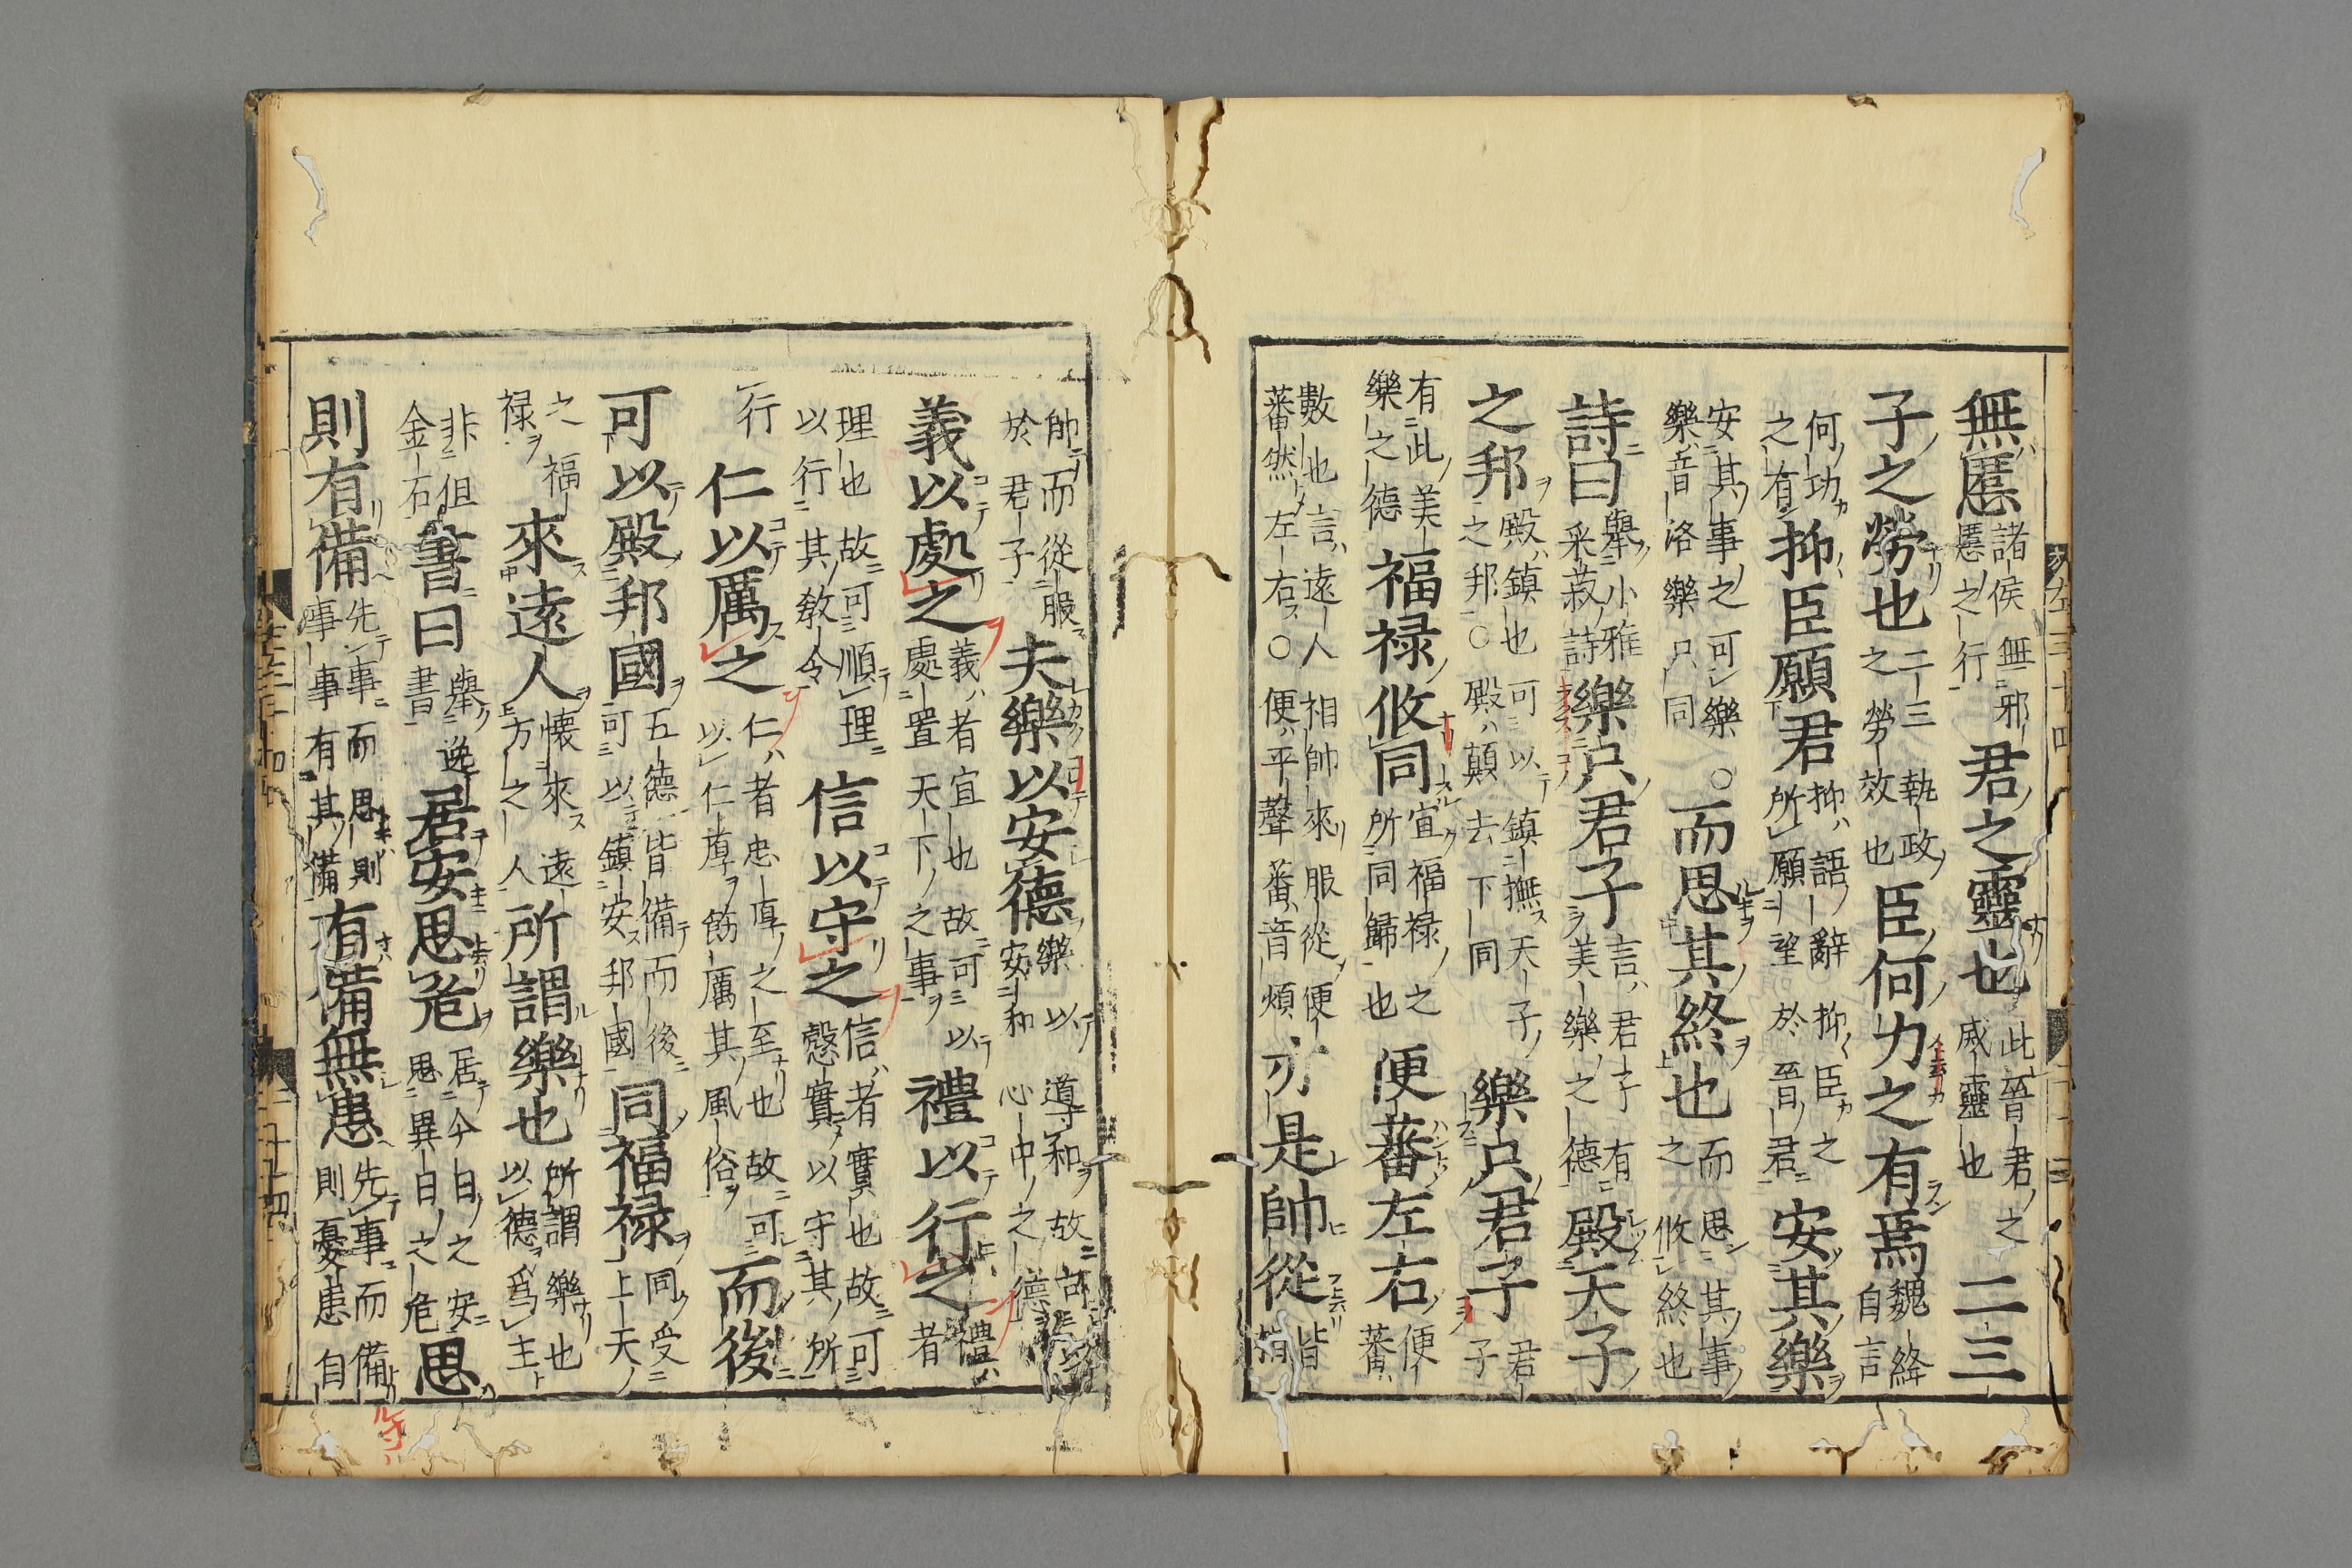 無慝諸侯無邪慝之行君之靈也此晉君之威靈也二三
子之勞也二三執政之勞效也臣何力之有焉魏絳自言
何功之有抑臣願君抑語辭抑臣之所願望於晉君安其樂
安其事之可樂○樂音洛樂只同而思其終也而思其事之攸終也
詩曰舉小雅采菽詩樂只君子言君子有美樂之德殿天子
之邦殿鎮也可以鎮撫天子之邦○殿顛去下同樂只君子君子
有此美樂之德福祿攸同宜福祿之所同歸也便蕃左右便蕃
數也言遠人相帥來服從便蕃然左右○便平聲蕃音煩亦是帥從皆相
帥而從服於君子夫樂以安德樂以導和故安和心中之德
義以處之義者宜也故可以處置天下之事禮以行之禮者
理也故可順理以行其教令信以守之信者實也故可慤實以守其所
行仁以厲之仁者忠厚之至也故可以仁厚飭厲其風俗而後
可以殿邦國五德皆備而後可以鎮安邦國同福祿同受上天
之福祿來遠人懷來遠方之人所謂樂也所謂樂也以德爲主
非但金石書曰舉逸書居安思危居今日之安思異日之危思
則有備先事而思則事事有其備有備無患先事而備則憂患自